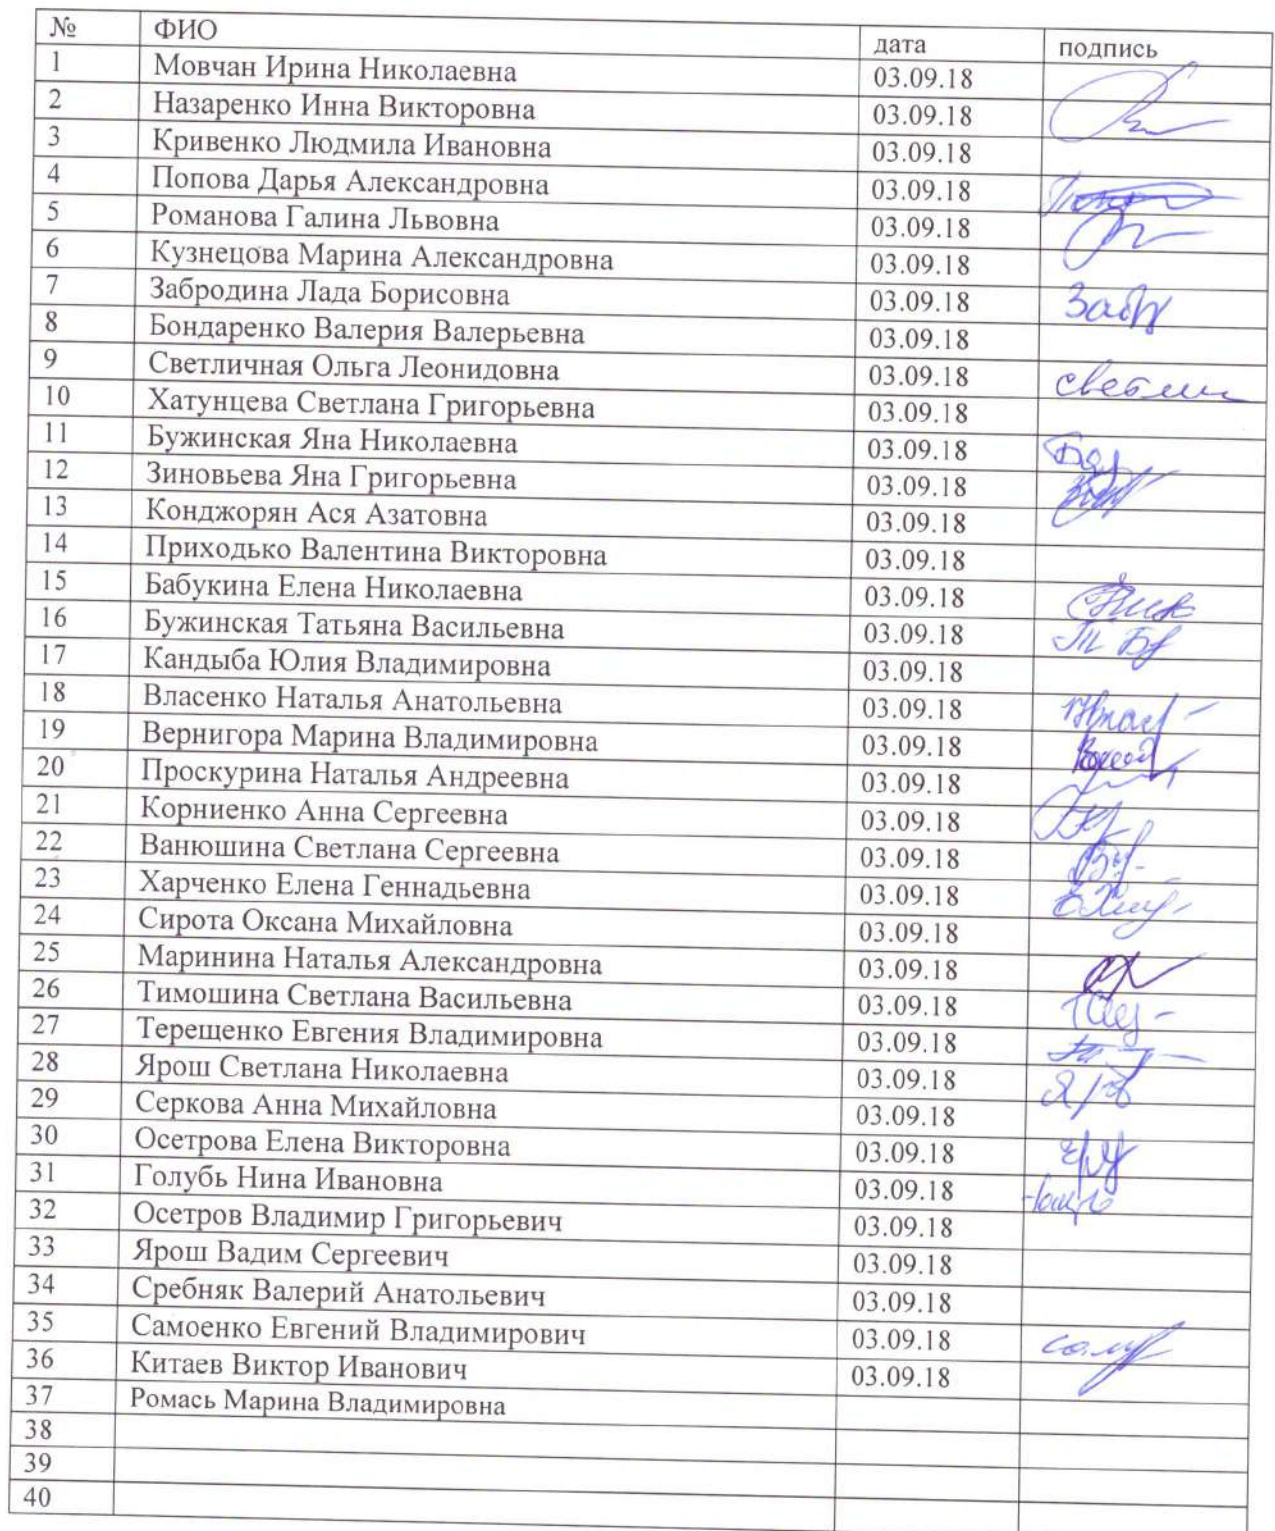 № ФИО дата подпись
1 Мовчан Ирина Николаевна 03.09.18
2 Назаренко Инна Викторовна 03.09.18
3 Кривенко Людмила Ивановна 03.09.18
4 Попова Дарья Александровна 03.09.18
5 Романова Галина Львовна 03.09.18
6 Кузнецова Марина Александровна 03.09.18
7 Забродина Лада Борисовна 03.09.18
8 Бондаренко Валерия Валерьевна 03.09.18
9 Светличная Ольга Леонидовна 03.09.18
10 Хатунцева Светлана Григорьевна 03.09.18
11 Бужинская Яна Николаевна 03.09.18
12 Зиновьева Яна Григорьевна 03.09.18
13 Конджорян Ася Азатовна 03.09.18
14 Приходько Валентина Викторовна 03.09.18
15 Бабукина Елена Николаевна 03.09.18
16 Бужинская Татьяна Васильевна 03.09.18
17 Кандыба Юлия Владимировна 03.09.18
18 Власенко Наталья Анатольевна 03.09.18
19 Вернигора Марина Владимировна 03.09.18
20 Проскурина Наталья Андреевна 03.09.18
21 Корниенко Анна Сергеевна 03.09.18
22 Ванюшина Светлана Сергеевна 03.09.18
23 Харченко Елена Геннадьевна 03.09.18
24 Сирота Оксана Михайловна 03.09.18
25 Маринина Наталья Александровна 03.09.18
26 Тимошина Светлана Васильевна 03.09.18
27 Терещенко Евгения Владимировна 03.09.18
28 Ярош Светлана Николаевна 03.09.18
29 Серкова Анна Михайловна 03.09.18
30 Осетрова Елена Викторовна 03.09.18
31 Голубь Нина Ивановна 03.09.18
32 Осетров Владимир Григорьевич 03.09.18
33 Ярош Вадим Сергеевич 03.09.18
34 Сребняк Валерий Анатольевич 03.09.18
35 Самоенко Евгений Владимирович 03.09.18
36 Китаев Виктор Иванович 03.09.18
37 Ромась Марина Владимировна
38
39
40